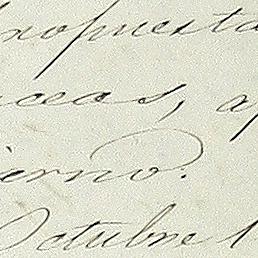 propuesta
ceas, a
ierno.
Octubre 1